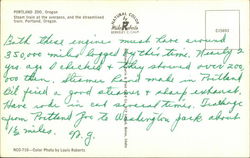 PORTLAND ZOO, Oregon
Steam train at the overpass, and the streamlined train, Portland, Oregon.
NATURAL COLOR
C15893
Both these engines must have around
350,000 miles logged by this time. Nearly 2
yrs ago I checked & they showed over 200,
000 then. Steamer hand made in Portland.
Oil fired a good steamer & sharp exhaust.
Have rode in cab several times. Trackage
from Portland Zoo to Washington park about
1½ miles.
NCO-719—Color Photo by Louis Roberts